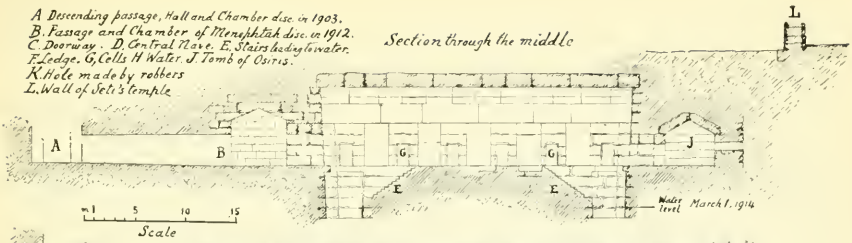 A Descending passage, Hall and Chamber disc. in 1903.
B. Passage and Chamber of Menephtah disc. in 1912.
C. Doorway. D. Central Nave. E. Stairs leading to water.
F. Ledge. G. Cells H Water. J. Tomb of Osiris.
K. Hole made by robbers
L. Wall of Seti's temple
Section through the middle
L
A
B
G
G
J
E
E
Water level March 1, 1914
m 1 5 10 15
Scale